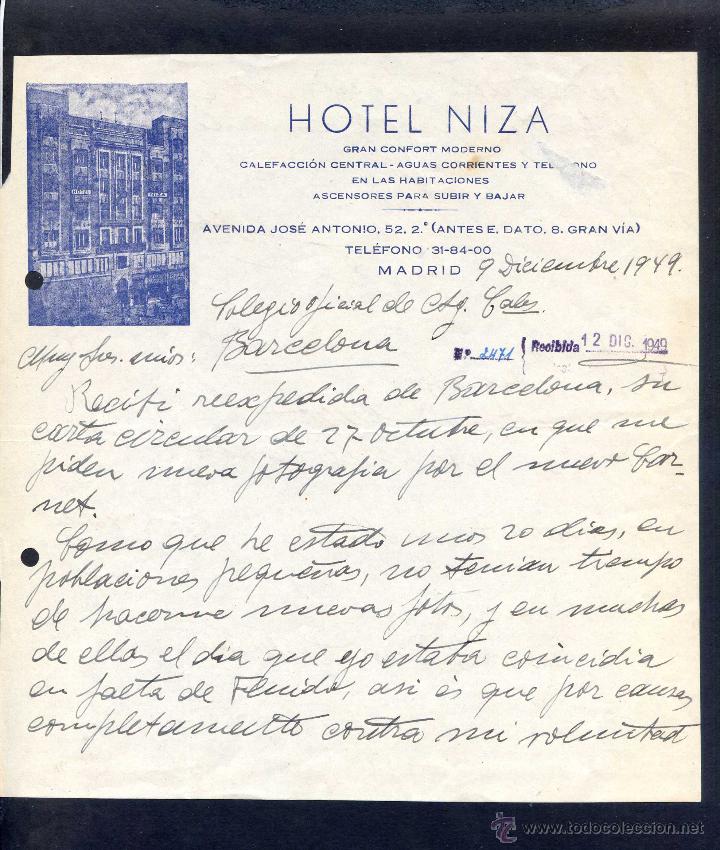 HOTEL NIZA
GRAN CONFORT MODERNO
CALEFACCIÓN CENTRAL - AGUAS CORRIENTES Y TELÉFONO
EN LAS HABITACIONES
ASCENSORES PARA SUBIR Y BAJAR
AVENIDA JOSÉ ANTONIO, 52, 2.º (ANTES E. DATO, 8. GRAN VÍA)
TELÉFONO 31-84-00
MADRID 9 Diciembre 1949.
HOTEL NIZA
Colegio oficial de Ag. Cales.
Barcelona
N.º 2471 Recibida 12 DIC. 1949
Muy Sres. mios:
Recibi reexpedida de Barcelona, su
carta circular de 27 octubre, en que me
piden nueva fotografia por el nuevo Car-
net.
Como que he estado unos 20 dias, en
poblaciones pequeñas, no tenian tiempo
de hacerme nuevas fotos, y en muchas
de ellas el dia que yo estaba coincidia
en falta de Fluido, asi es que por causas
completamente contra mi voluntad
www.todocoleccion.net